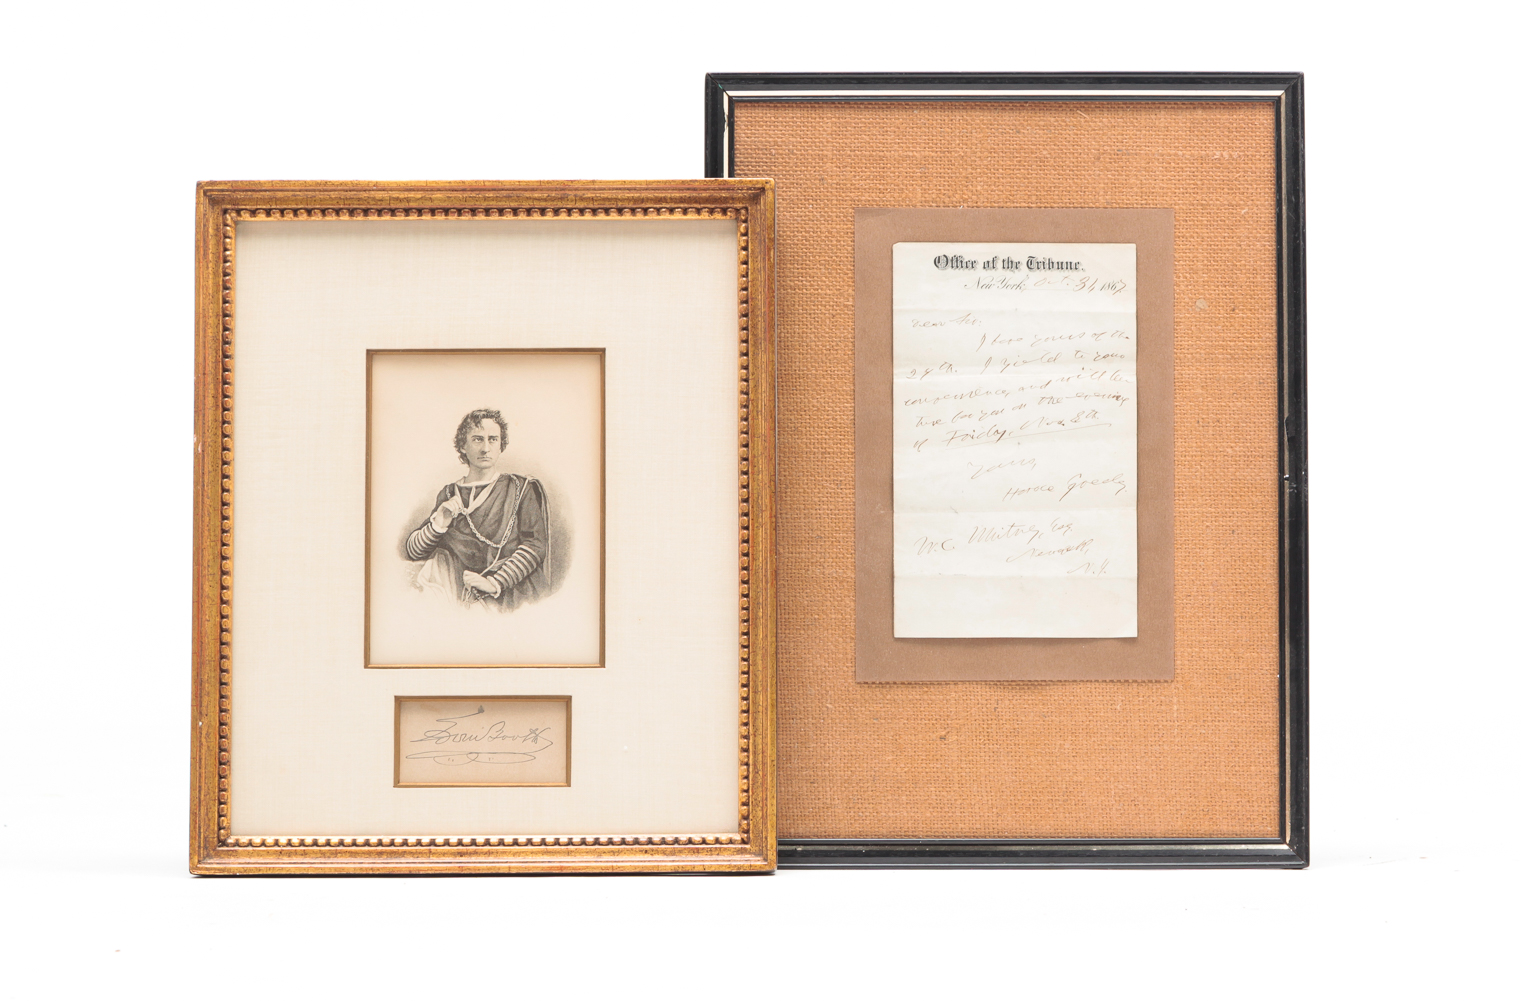 Edwin Booth
Office of the Tribune.
New York, Oct. 31, 1867
Dear Sir:
I have yours of the
29th. I yield to your
convenience, and will be
there for you on the evening
of Friday, Nov. 8th.
Yours,
Horace Greeley
W. C. Whitney, Esq.
Newark,
N. J.